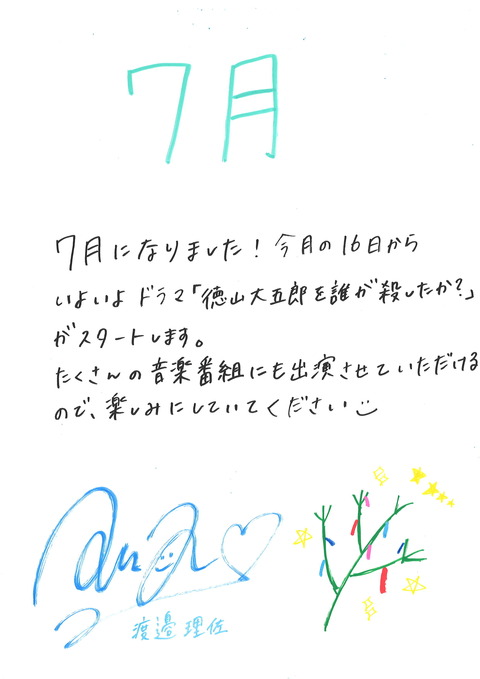 7月
7月になりました！今月の16日から
いよいよドラマ「徳山大五郎を誰が殺したか？」
がスタートします。
たくさんの音楽番組にも出演させていただける
ので、楽しみにしていてください
渡邉理佐